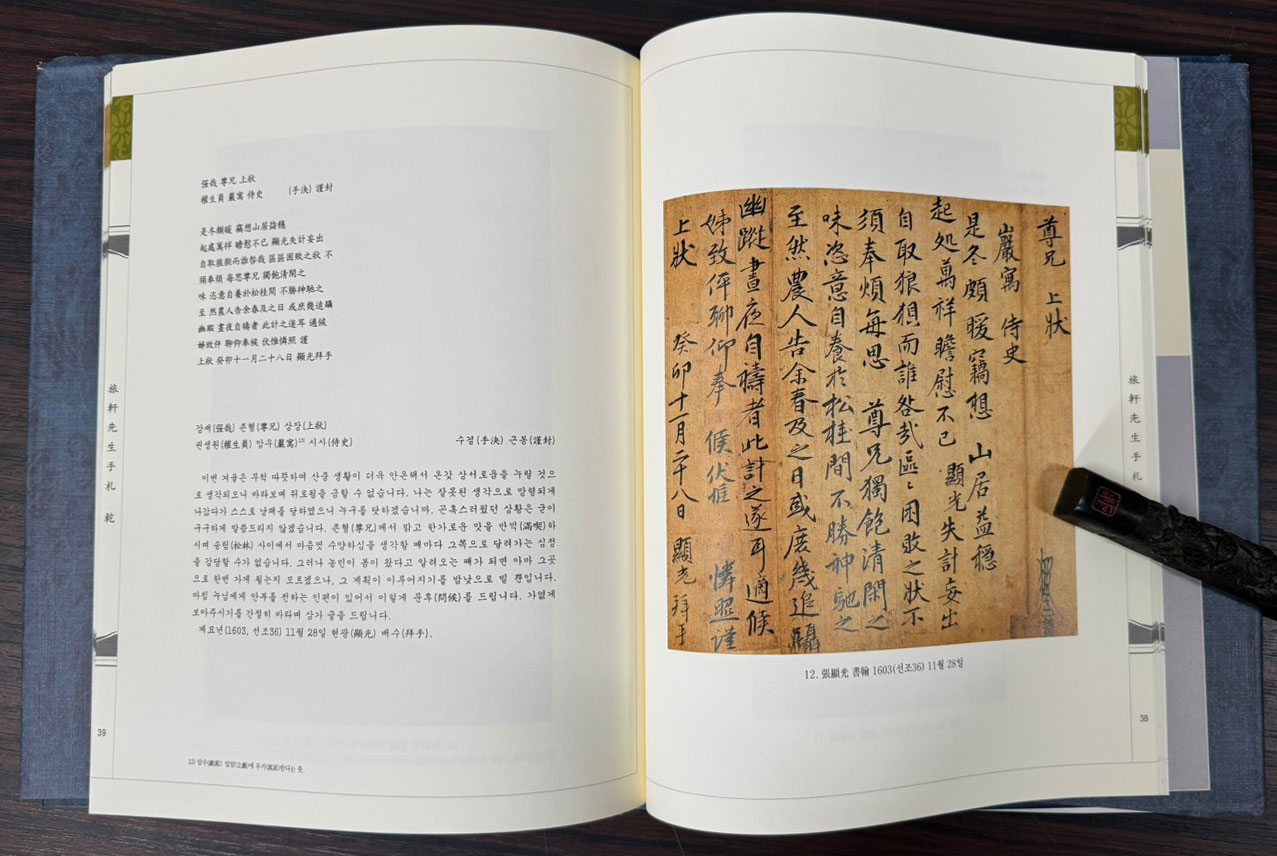 尊兄 上狀
巖寓 侍史
是冬頗暖竊想 山居益穩
起処萬祥瞻慰不已 顯光失計妄出
自取狼狽而誰咎哉區〻困敗之狀不
須奉煩每思 尊兄獨飽清閑之
味恣意自養於松桂間不勝神馳之
至然農人告余春及之日或庶幾追躡
幽蹤晝夜自禱者此計之遂耳適候
姊致伻聊仰奉 候伏惟 憐照謹
上狀 癸卯十一月二十八日 顯光拜手
12. 張顯光 書翰 1603(선조36) 11월 28일
旅軒先生手札
38
强哉 尊兄 上狀
權生員 巖寓 侍史 (手決) 謹封
是冬頗暖 竊想山居益穩
起處萬祥 瞻慰不已 顯光失計妄出
自取狼狽而誰咎哉 區區困敗之狀 不
須奉煩 每思尊兄 獨飽清閒之
味 恣意自養於松桂間 不勝神馳之
至 然農人告余春及之日 或庶幾追躡
幽蹤 晝夜自禱者 此計之遂耳 適候
姊致伻 聊仰奉候 伏惟憐照 謹
上狀 癸卯十一月二十八日 顯光拜手
강재(强哉) 존형(尊兄) 상장(上狀)
권생원(權生員) 암우(巖寓)¹³⁾ 시사(侍史) 수결(手決) 근봉(謹封)
이번 겨울은 무척 따뜻하여 산중 생활이 더욱 안온해서 온갖 상서로움을 누릴 것으
로 생각되오니 바라보며 위로됨을 금할 수 없습니다. 나는 잘못된 생각으로 망령되게
나갔다가 스스로 낭패를 당하였으니 누구를 탓하겠습니까. 곤혹스러웠던 상황은 굳이
구구하게 말씀드리지 않겠습니다. 존형(尊兄)께서 맑고 한가로운 맛을 만끽(滿喫)하
시며 송림(松林) 사이에서 마음껏 수양하심을 생각할 때마다 그쪽으로 달려가는 심정
을 감당할 수가 없습니다. 그러나 농민이 봄이 왔다고 알려오는 때가 되면 아마 그곳
으로 한번 가게 될는지 모르겠으나, 그 계획이 이루어지기를 밤낮으로 빌 뿐입니다.
마침 누님에게 안부를 전하는 인편이 있어서 이렇게 문후(問候)를 드립니다. 가엾게
보아주시기를 간절히 바라며 삼가 글을 드립니다.
계묘년(1603, 선조36) 11월 28일 현광(顯光) 배수(拜手).
旅軒先生手札 乾
39